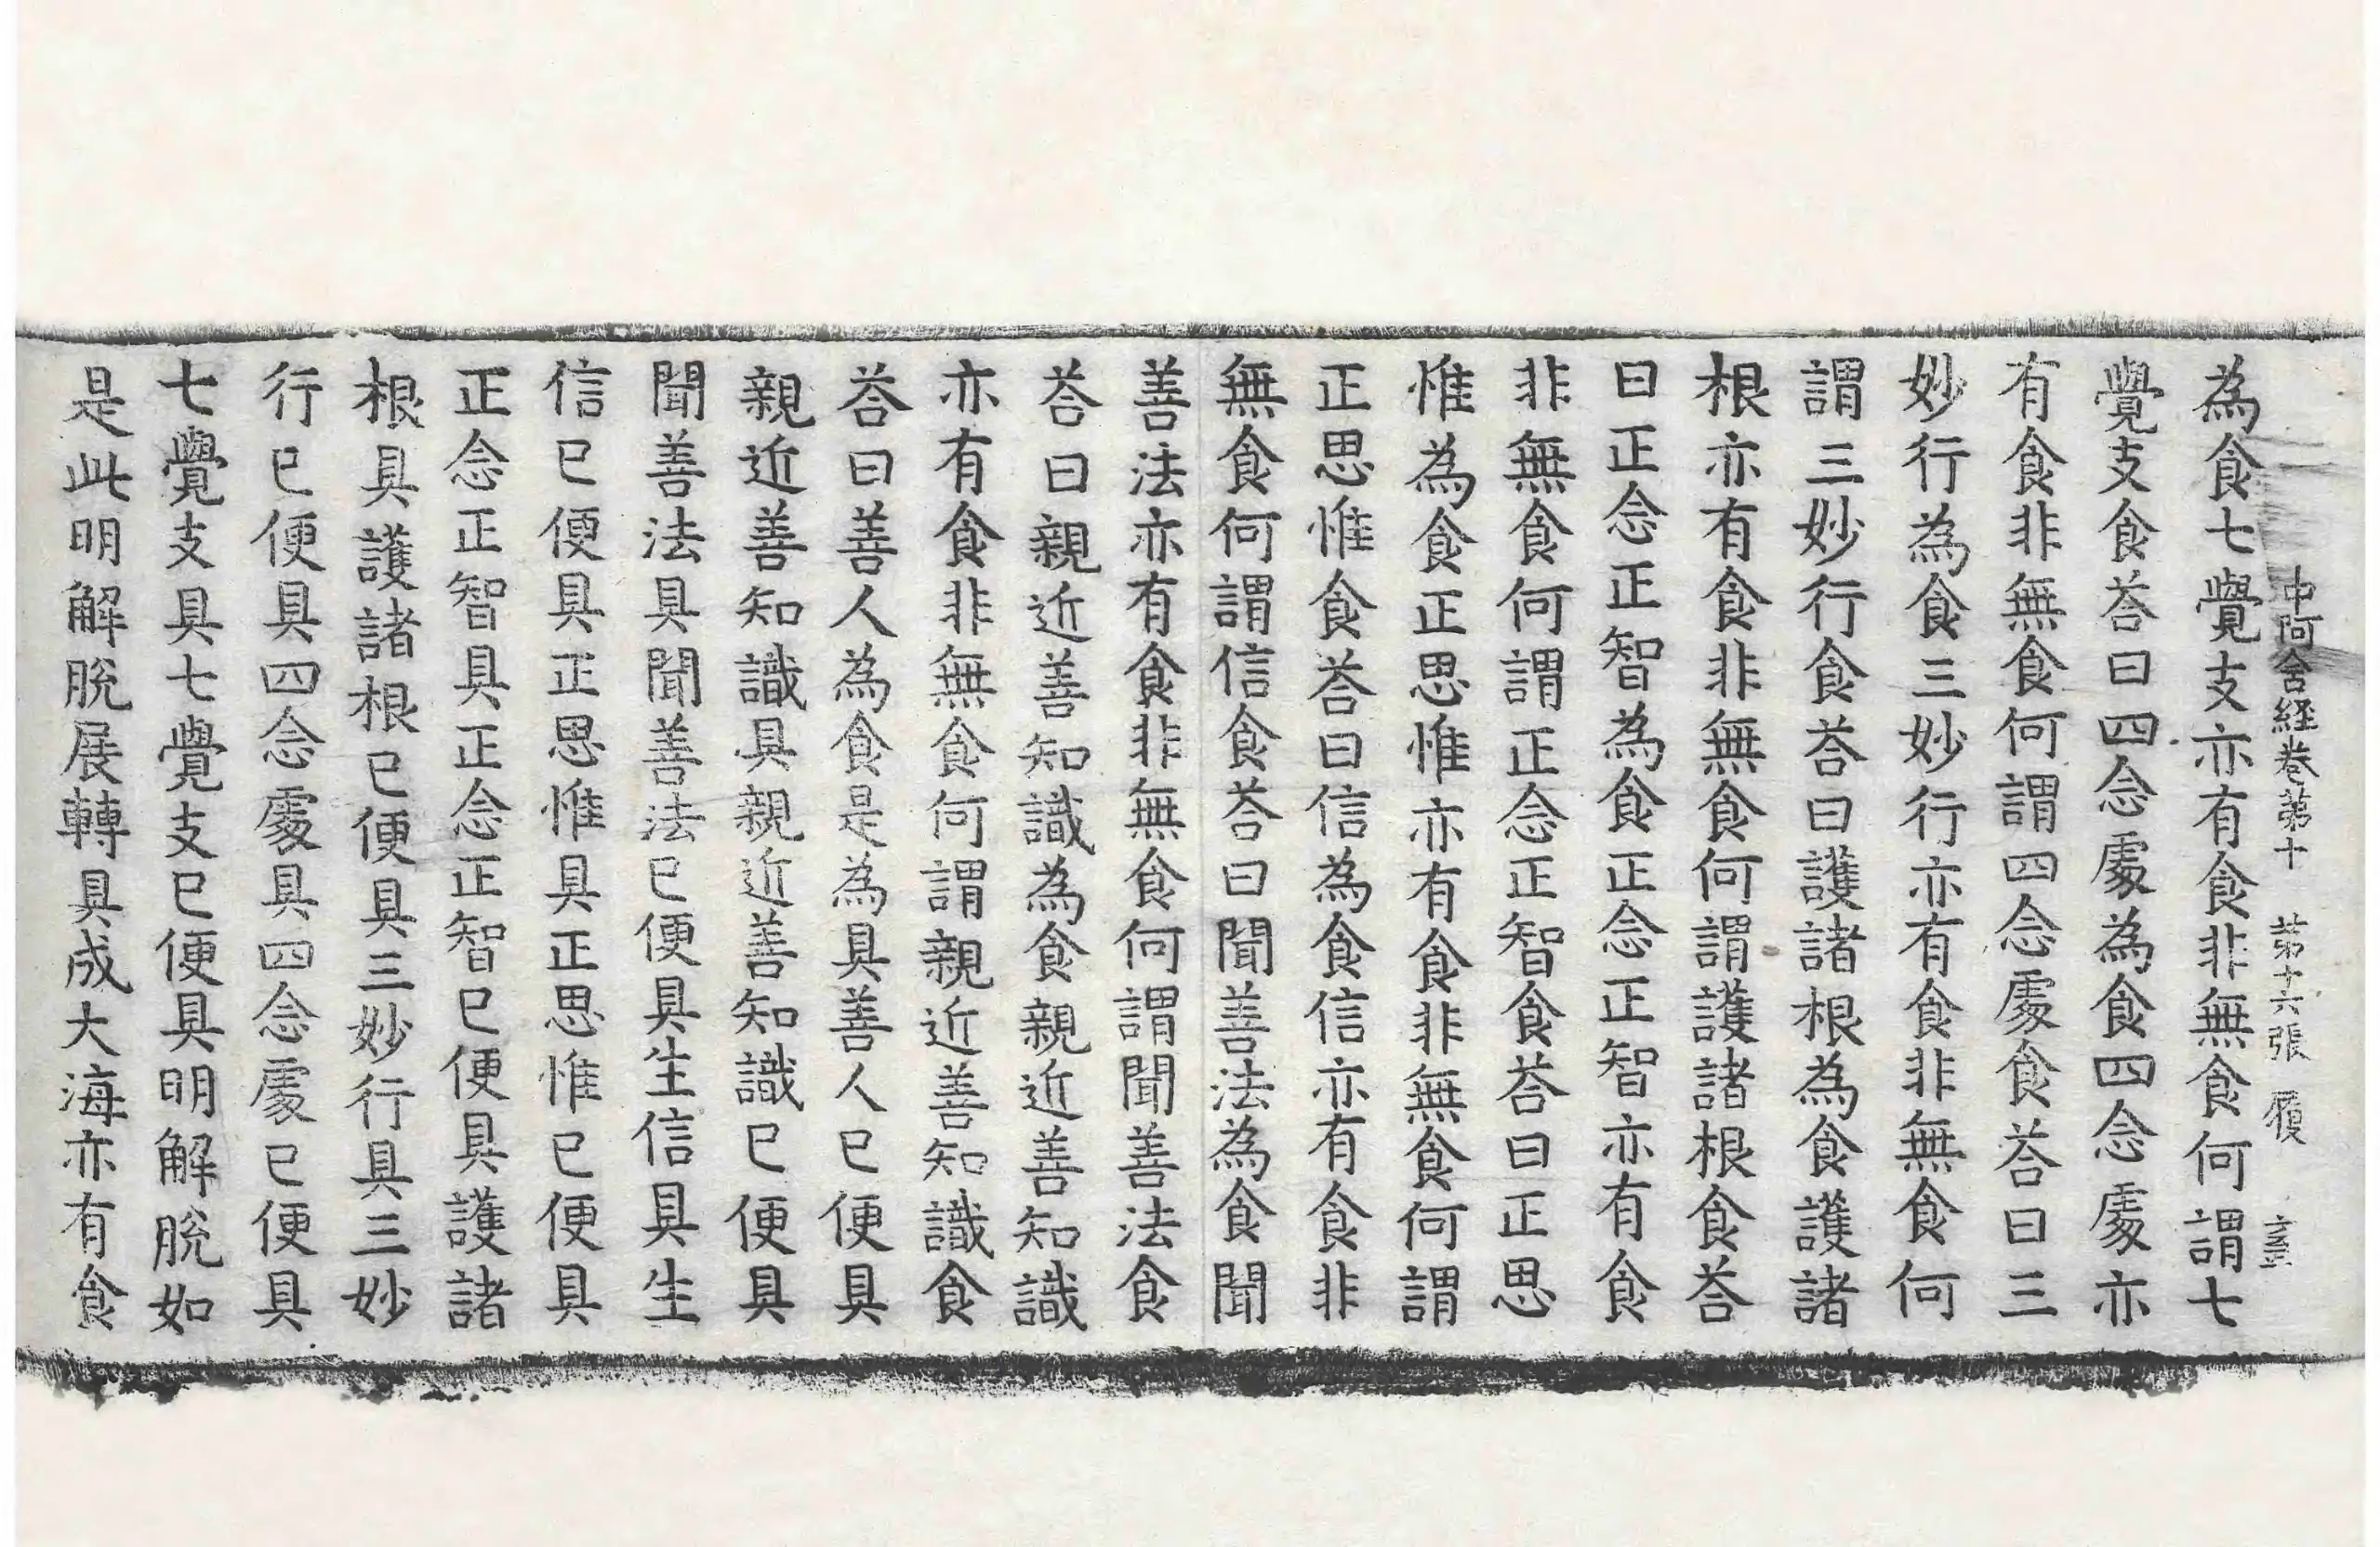 中阿含経卷第十 第十六張 履
為食七覺支亦有食非無食何謂七
覺支食荅曰四念處為食四念處亦
有食非無食何謂四念處食荅曰三
妙行為食三妙行亦有食非無食何
謂三妙行食荅曰護諸根為食護諸
根亦有食非無食何謂護諸根食荅
曰正念正智為食正念正智亦有食
非無食何謂正念正智食荅曰正思
惟為食正思惟亦有食非無食何謂
正思惟食荅曰信為食信亦有食非
無食何謂信食荅曰聞善法為食聞
善法亦有食非無食何謂聞善法食
荅曰親近善知識為食親近善知識
亦有食非無食何謂親近善知識食
荅曰善人為食是為具善人已便具
親近善知識具親近善知識已便具
聞善法具聞善法已便具生信具生
信已便具正思惟具正思惟已便具
正念正智具正念正智已便具護諸
根具護諸根已便具三妙行具三妙
行已便具四念處具四念處已便具
七覺支具七覺支已便具明解脫如
是此明解脫展轉具成大海亦有食